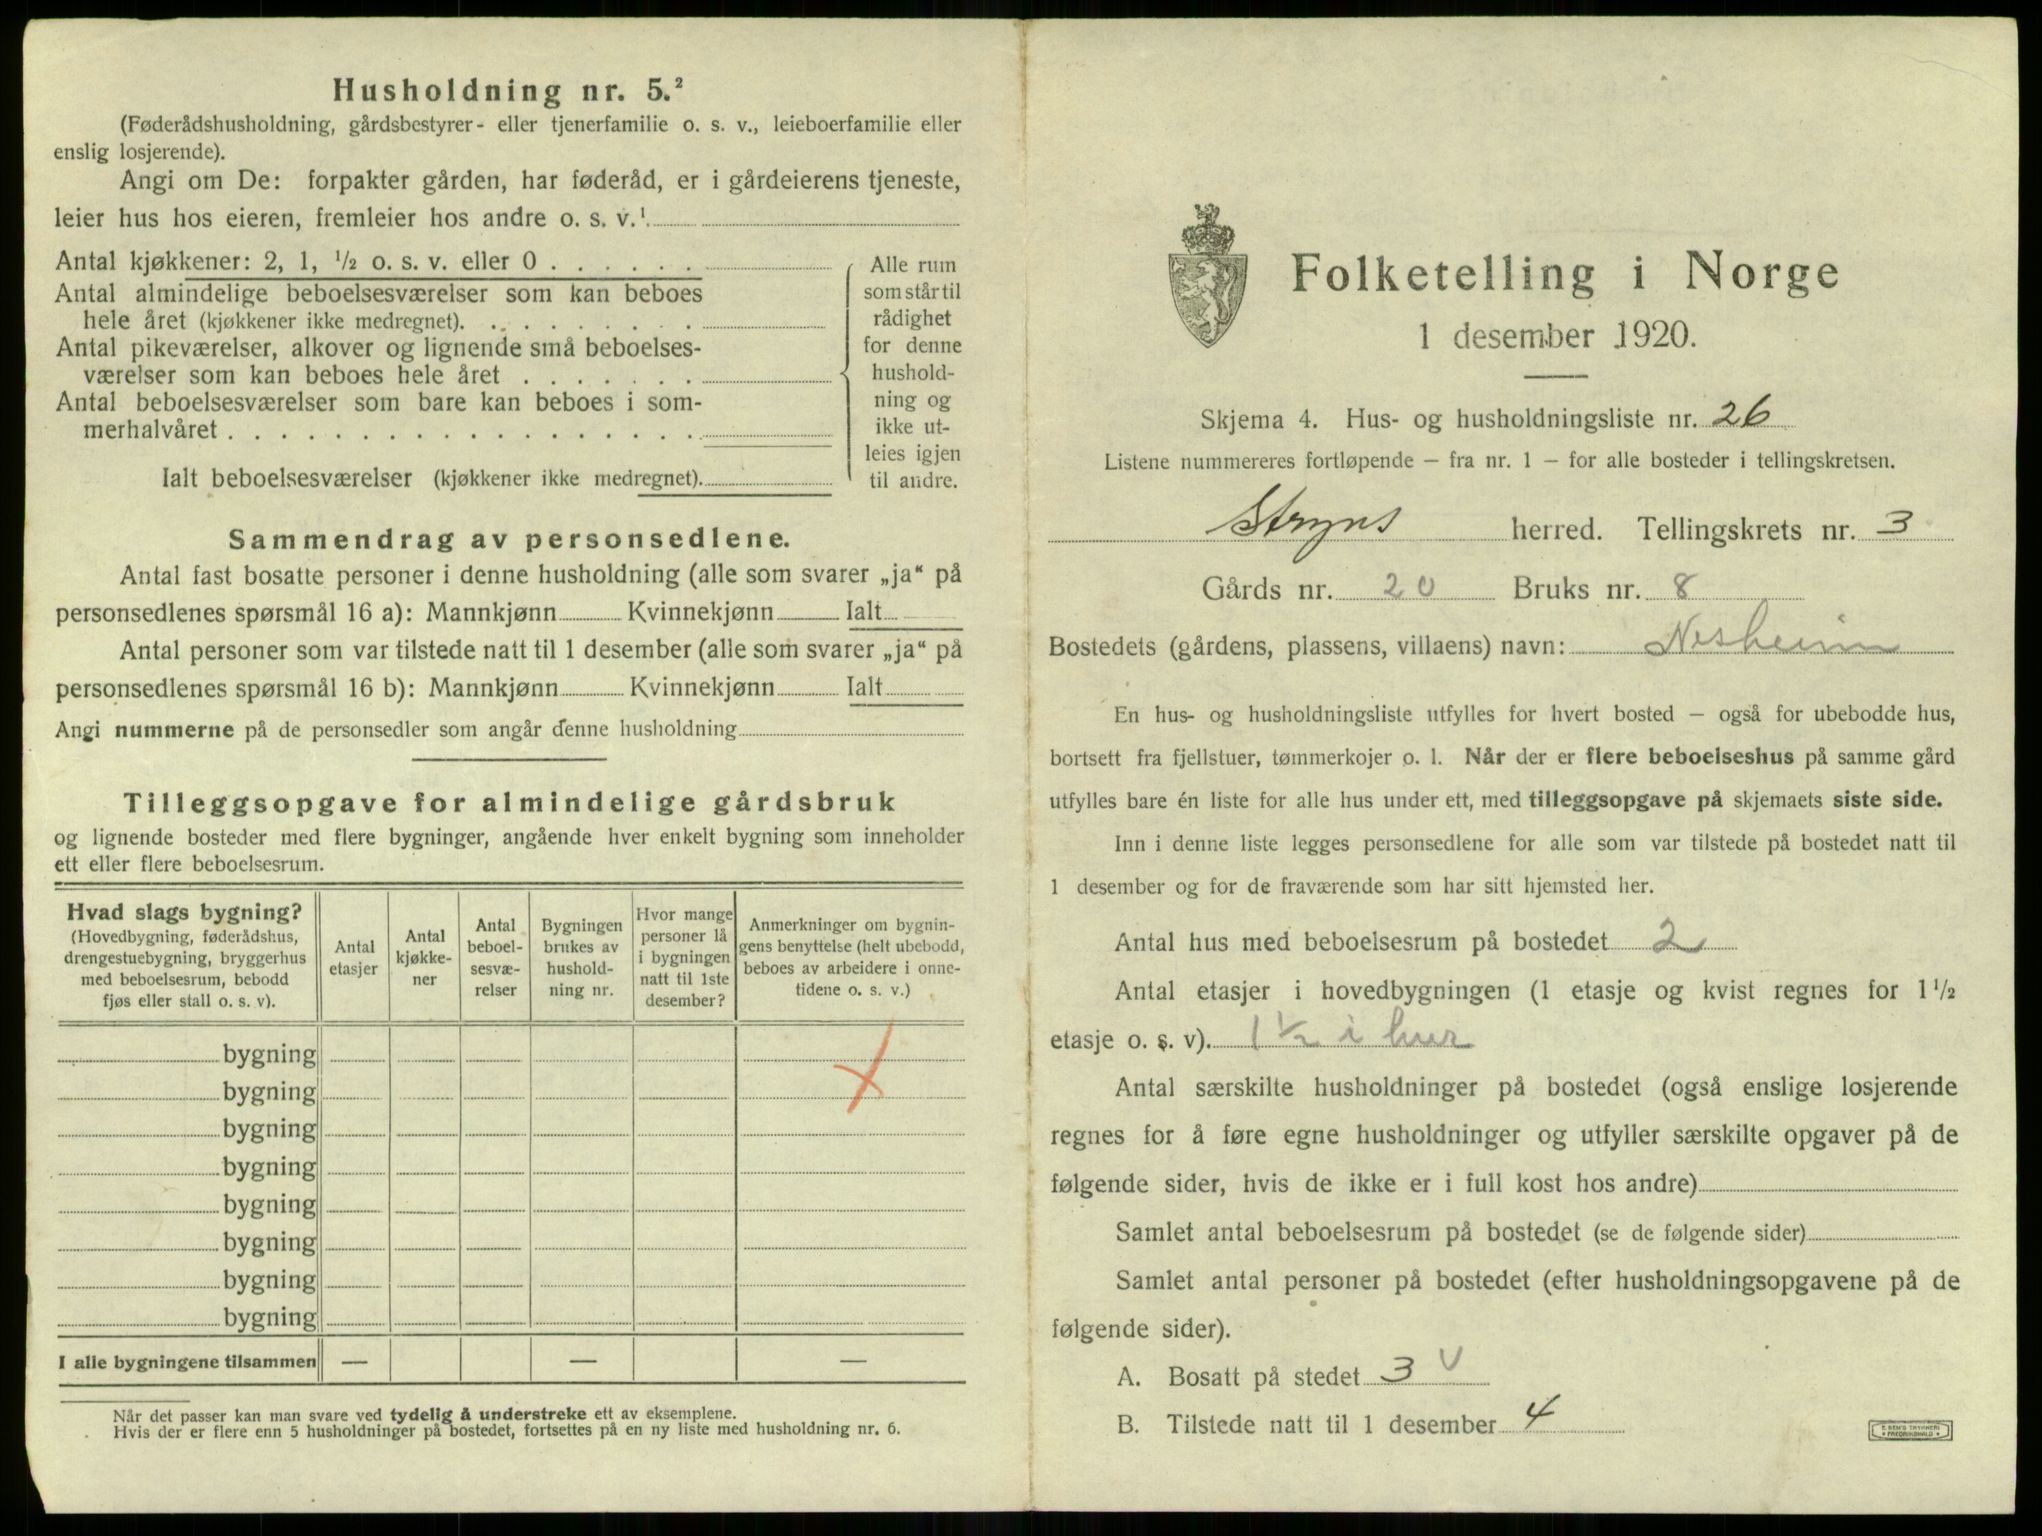 Husholdning nr. 5.²
(Føderådshusholdning, gårdsbestyrer- eller tjenerfamilie o. s. v., leieboerfamilie eller
enslig losjerende).
Angi om De: forpakter gården, har føderåd, er i gårdeierens tjeneste,
leier hus hos eieren, fremleier hos andre o. s. v.¹
Antal kjøkkener: 2, 1, ½ o. s. v. eller 0
Antal almindelige beboelsesværelser som kan beboes
hele året (kjøkkener ikke medregnet).
Antal pikeværelser, alkover og lignende små beboelses-
værelser som kan beboes hele året
Antal beboelsesværelser som bare kan beboes i som-
merhalvåret
Ialt beboelsesværelser (kjøkkener ikke medregnet).
Alle rum
som står til
rådighet
for denne
hushold-
ning og
ikke ut-
leies igjen
til andre.
Sammendrag av personsedlene.
Antal fast bosatte personer i denne husholdning (alle som svarer „ja“ på
personsedlenes spørsmål 16 a): Mannkjønn Kvinnekjønn Ialt
Antal personer som var tilstede natt til 1 desember (alle som svarer „ja“ på
personsedlenes spørsmål 16 b): Mannkjønn Kvinnekjønn Ialt
Angi nummerne på de personsedler som angår denne husholdning
Tilleggsopgave for almindelige gårdsbruk
og lignende bosteder med flere bygninger, angående hver enkelt bygning som inneholder
ett eller flere beboelsesrum.
Hvad slags bygning?
(Hovedbygning, føderådshus,
drengestuebygning, bryggerhus
med beboelsesrum, bebodd
fjøs eller stall o. s. v).
Antal
etasjer
Antal
kjøkke-
ner
Antal
beboel-
sesvæ-
relser
Bygningen
brukes av
hushold-
ning nr.
Hvor mange
personer lå
i bygningen
natt til 1ste
desember?
Anmerkninger om bygnin-
gens benyttelse (helt ubebodd,
beboes av arbeidere i onne-
tidene o. s. v.)
bygning
bygning
bygning
bygning
bygning
bygning
bygning
bygning
I alle bygningene tilsammen — — —
Når det passer kan man svare ved tydelig å understreke ett av eksemplene.
Hvis der er flere enn 5 husholdninger på bostedet, fortsettes på en ny liste med husholdning nr. 6.
Folketelling i Norge
1 desember 1920.
Skjema 4. Hus- og husholdningsliste nr. 26
Listene nummereres fortløpende – fra nr. 1 – for alle bosteder i tellingskretsen.
Stryns herred. Tellingskrets nr. 3
Gårds nr. 20 Bruks nr. 8
Bostedets (gårdens, plassens, villaens) navn: Nesheim
En hus- og husholdningsliste utfylles for hvert bosted – også for ubebodde hus,
bortsett fra fjellstuer, tømmerkojer o. l. Når der er flere beboelseshus på samme gård
utfylles bare én liste for alle hus under ett, med tilleggsopgave på skjemaets siste side.
Inn i denne liste legges personsedlene for alle som var tilstede på bostedet natt til
1 desember og for de fraværende som har sitt hjemsted her.
Antal hus med beboelsesrum på bostedet 2
Antal etasjer i hovedbygningen (1 etasje og kvist regnes for 1 ½
etasje o. s. v). 1 ½ i hver
Antal særskilte husholdninger på bostedet (også enslige losjerende
regnes for å føre egne husholdninger og utfyller særskilte opgaver på de
følgende sider, hvis de ikke er i full kost hos andre)
Samlet antal beboelsesrum på bostedet (se de følgende sider)
Samlet antal personer på bostedet (efter husholdningsopgavene på de
følgende sider).
A. Bosatt på stedet 3
B. Tilstede natt til 1 desember 4